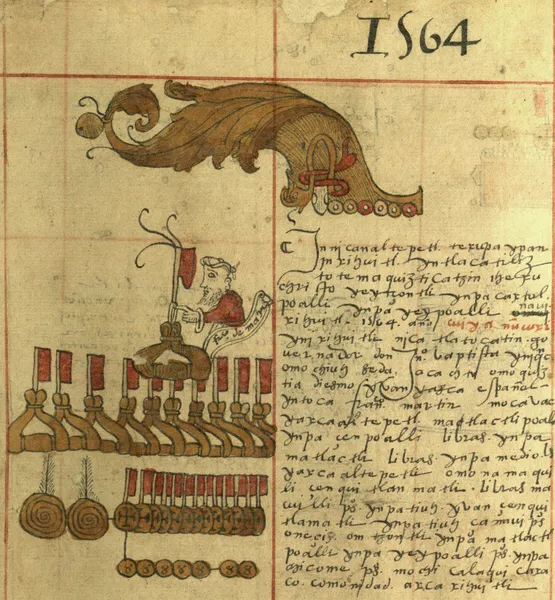 1564
Inni can altepetl. texupa ypan
yn xihuitl yn tlacatiliz
totemaquizticatzin ihesu
christo yeytzontli ynpa caxtul
poalli ynpa yeypoalli naui
xihuitl - 1564. años
yn xihuitl nica tlatocatin. go
vernador don jno baptista ynqc
omochiuh seda. oca omoquix
tia diesmo yvan yaxca español
yntoca franco martin mocavac
yaxca altepetl matlactli poal
ynpa cenpoalli libras ynpa
matlactli libras. ynpa medio li
yaxca altepetl omonamaqui
li cenquitlanmatli. libras ma
cuilli ps ynpatiuh yvan cenqui
tlamatli ynpatiuh ps
omtzontli ynpa matlact
poalli ynpa yeypoalli ps. ynpa
chicome ps. mochi calaqui caxa
co. comonidad. axca xihuitl